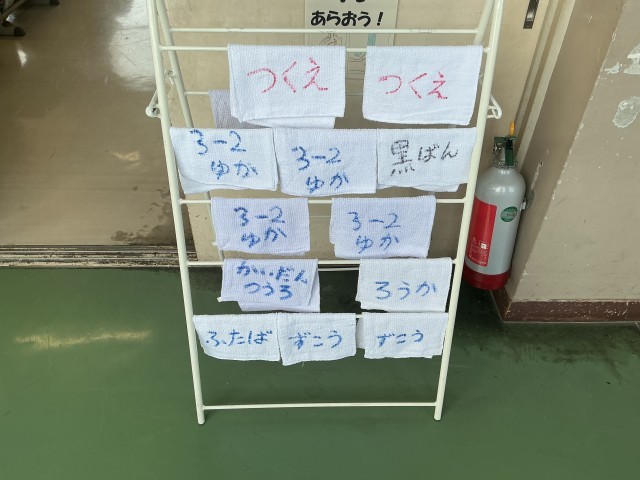 あらおう！
つくえ
つくえ
3-2
ゆか
3-2
ゆか
黒ばん
3-2
ゆか
3-2
ゆか
かいだん
つうろ
ろうか
ふたば
ずこう
ずこう